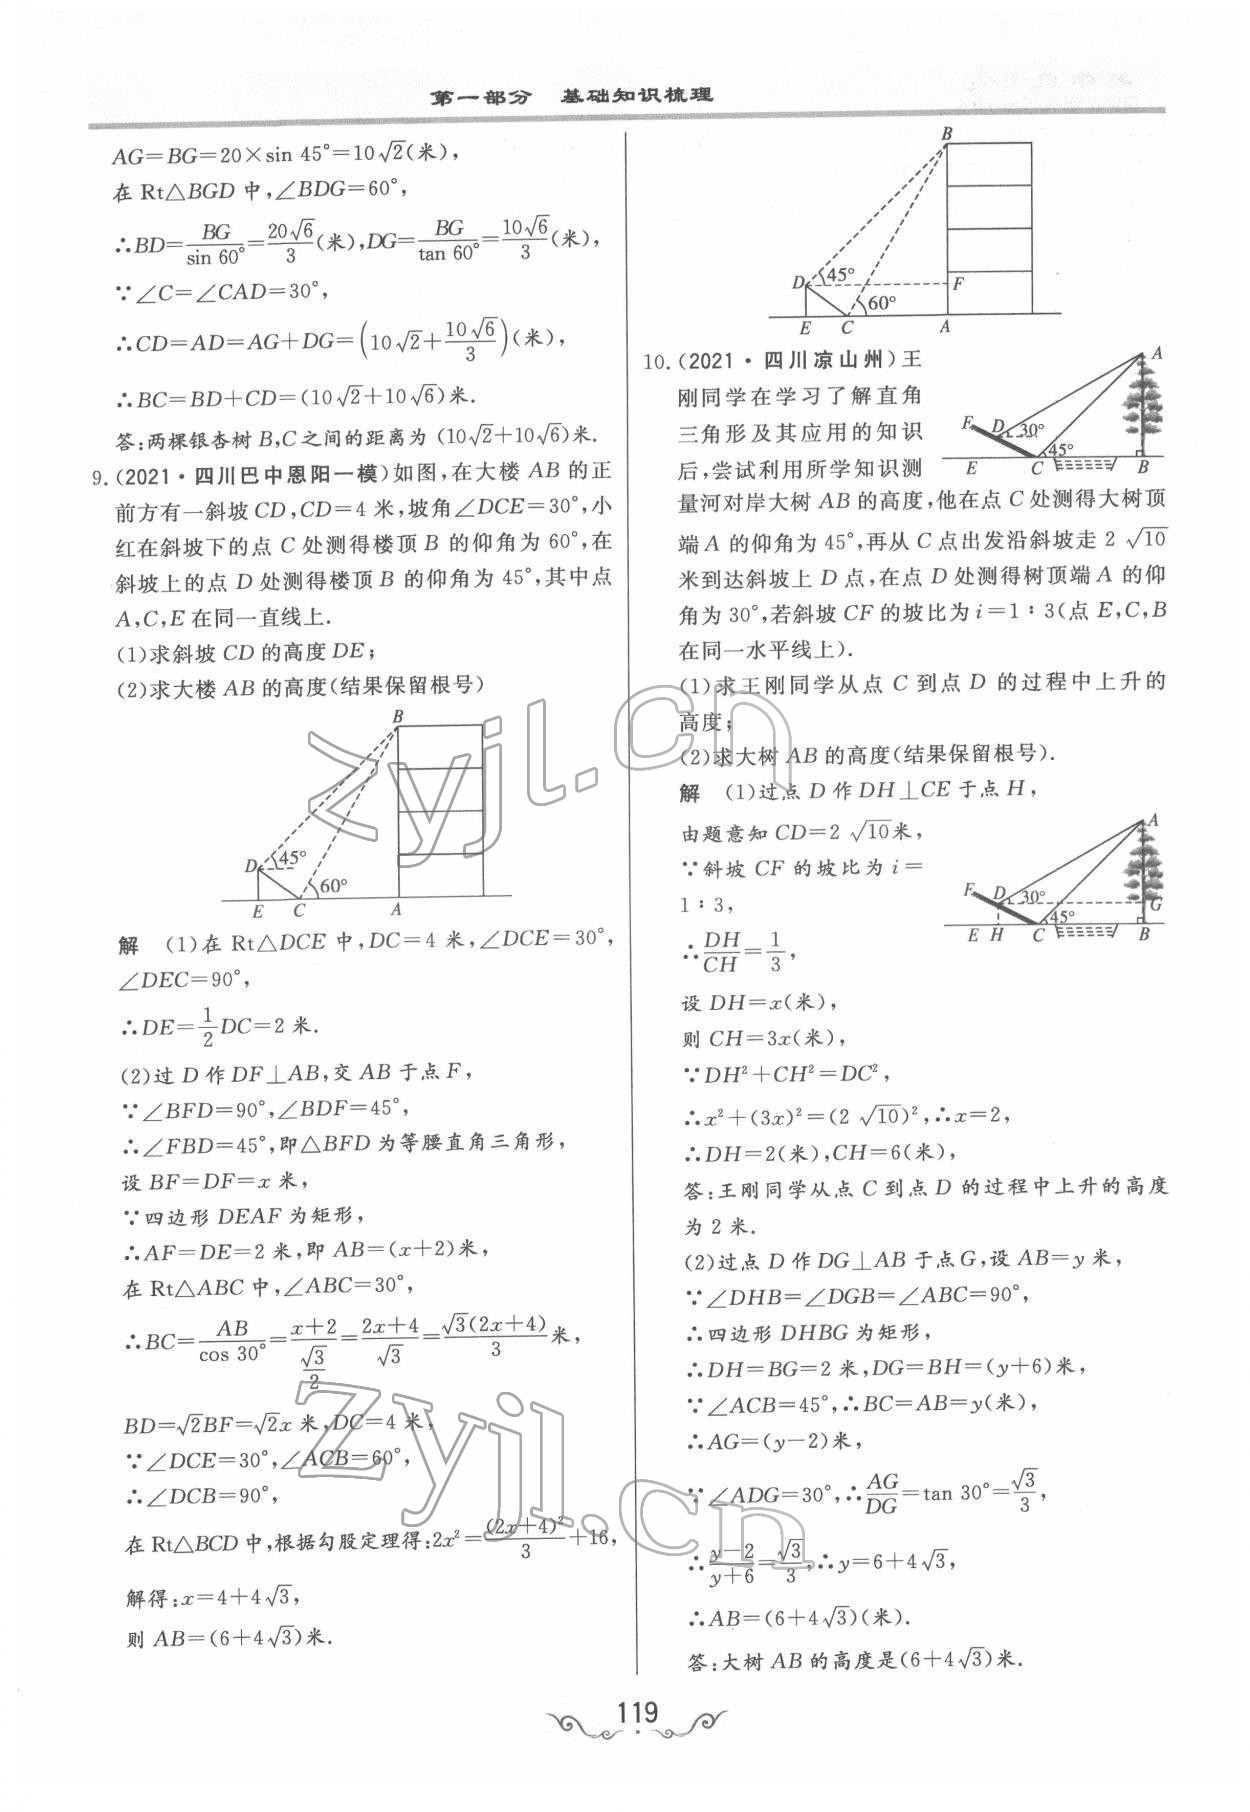 第一部分　基础知识梳理
AG=BG=20×sin 45°=10√2(米),
在 Rt△BGD 中,∠BDG=60°,
∴BD=BG/sin 60°=20√6/3(米),DG=BG/tan 60°=10√6/3(米),
∵∠C=∠CAD=30°,
∴CD=AD=AG+DG=(10√2+10√6/3)(米),
∴BC=BD+CD=(10√2+10√6)米.
答:两棵银杏树 B,C 之间的距离为 (10√2+10√6)米.
9. (2021·四川巴中恩阳一模)如图,在大楼 AB 的正
前方有一斜坡 CD,CD=4 米,坡角∠DCE=30°,小
红在斜坡下的点 C 处测得楼顶 B 的仰角为 60°,在
斜坡上的点 D 处测得楼顶 B 的仰角为 45°,其中点
A,C,E 在同一直线上.
(1)求斜坡 CD 的高度 DE;
(2)求大楼 AB 的高度(结果保留根号)
B
D 45°
60°
E C A
解　(1)在 Rt△DCE 中,DC=4 米,∠DCE=30°,
∠DEC=90°,
∴DE=1/2DC=2 米.
(2)过 D 作 DF⊥AB,交 AB 于点 F,
∵∠BFD=90°,∠BDF=45°,
∴∠FBD=45°,即△BFD 为等腰直角三角形,
设 BF=DF=x 米,
∵四边形 DEAF 为矩形,
∴AF=DE=2 米,即 AB=(x+2)米,
在 Rt△ABC 中,∠ABC=30°,
∴BC=AB/cos 30°=(x+2)/(√3/2)=(2x+4)/√3=√3(2x+4)/3米,
BD=√2BF=√2x 米,DC=4 米,
∵∠DCE=30°,∠ACB=60°,
∴∠DCB=90°,
在 Rt△BCD 中,根据勾股定理得:2x²=(2x+4)²/3+16,
解得:x=4+4√3,
则 AB=(6+4√3)米.
B
D 45° F
60°
E C A
10. (2021·四川凉山州)王
刚同学在学习了解直角
三角形及其应用的知识
后,尝试利用所学知识测
量河对岸大树 AB 的高度,他在点 C 处测得大树顶
端 A 的仰角为 45°,再从 C 点出发沿斜坡走 2√10
米到达斜坡上 D 点,在点 D 处测得树顶端 A 的仰
角为 30°,若斜坡 CF 的坡比为 i=1∶3(点 E,C,B
在同一水平线上).
A
F D 30°
45°
E C B
(1)求王刚同学从点 C 到点 D 的过程中上升的
高度;
(2)求大树 AB 的高度(结果保留根号).
解　(1)过点 D 作 DH⊥CE 于点 H,
由题意知 CD=2√10米,
∵斜坡 CF 的坡比为 i=
1∶3,
A
F D 30° G
45°
E H C B
∴DH/CH=1/3,
设 DH=x(米),
则 CH=3x(米),
∵DH²+CH²=DC²,
∴x²+(3x)²=(2√10)²,∴x=2,
∴DH=2(米),CH=6(米),
答:王刚同学从点 C 到点 D 的过程中上升的高度
为 2 米.
(2)过点 D 作 DG⊥AB 于点 G,设 AB=y 米,
∵∠DHB=∠DGB=∠ABC=90°,
∴四边形 DHBG 为矩形,
∴DH=BG=2 米,DG=BH=(y+6)米,
∵∠ACB=45°,∴BC=AB=y(米),
∴AG=(y−2)米,
∵∠ADG=30°,∴AG/DG=tan 30°=√3/3,
∴(y−2)/(y+6)=√3/3,∴y=6+4√3,
∴AB=(6+4√3)(米).
答:大树 AB 的高度是(6+4√3)米.
zyjl.cn
zyjl.cn
119